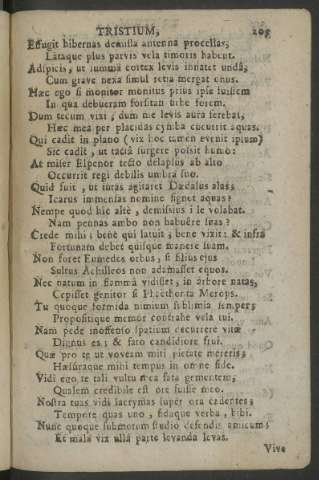 TRISTIUM, 209
Effugit hibernas demissa antenna procellas;
Lataque plus parvis vela timoris habent.
Adspicis, ut summâ cortex levis innatet undâ,
Cum grave nexa simul retia mergat onus.
Hæc ego si monitor monitus prius ipse fuissem
In qua debueram forsitan urbe forem.
Dum tecum vixi, dum me levis aura ferebat,
Hæc mea per placidas cymba cucurrit aquas.
Qui cadit in plano (vix hoc tamen evenit ipsum)
Sic cadit, ut tactâ surgere possit humo:
At miser Elpenor tecto delapsus ab alto
Occurrit regi debilis umbra suo.
Quid fuit, ut tutas agitaret Dædalus alas;
Icarus immensas nomine signet aquas?
Nempe quod hic altè, demissius ille volabat.
Nam pennas ambo non habuêre suas?
Crede mihi; benè qui latuit, bene vixit: & infra
Fortunam debet quisque manere suam.
Non foret Eumedes orbus, si filius ejus
Stultus Achilleos non adamasset equos.
Nec natum in flammâ vidisset, in arbore natas,
Cepisset genitor si Phaethonta Merops.
Tu quoque formida nimium sublimia semper;
Propositique memor contrahe vela tui.
Nam pede inoffenso spatium decurrere vitæ
Dignus es; & fato candidiore frui.
Quæ pro te ut voveam miti pietate mereris;
Hæsuraque mihi tempus in omne fide.
Vidi ego te tali vultu mea fata gementem,
Qualem credibile est ore fuisse meo.
Nostra tuas vidi lacrymas super ora cadentes;
Tempore quas uno, fidaque verba, bibi.
Nunc quoque submotum studio defendis amicum;
Et mala vix ullâ parte levanda levas.
Vive